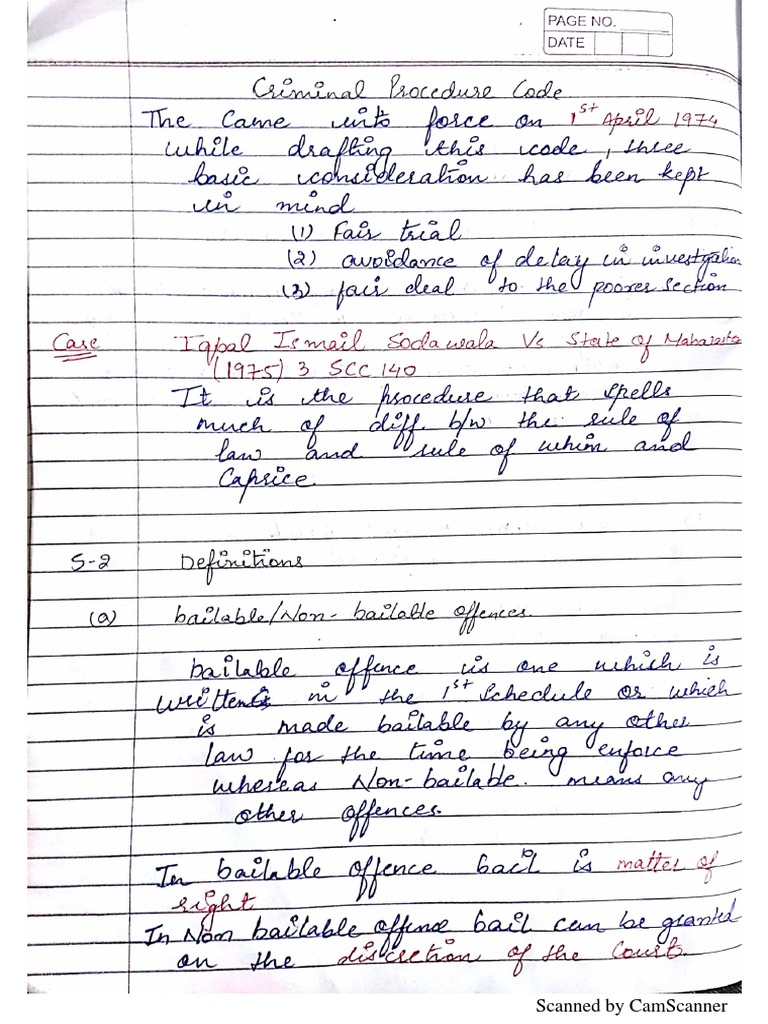 PAGE NO.
DATE
Criminal Procedure Code
The Came into force on 1st April 1974
while drafting this code, three
basic consideration has been kept
in mind
(1) Fair trial
(2) avoidance of delay in investigation
(3) fair deal to the poorer section
Case Iqbal Ismail Sodawala Vs State of
(1975) 3 SCC 140
It is the procedure that spells
much of diff. b/w the rule of
law and rule of whim and
Caprice.
S-2 Definitions
(a) bailable/Non-bailable offences.
bailable offence is one which is
written in the 1st Schedule or which
is made bailable by any other
law for the time being enforce
whereas Non-bailable. means any
other offences.
In bailable offence bail is matter of
right
In Non bailable offence bail can be granted
on the discretion of the Court.
Scanned by CamScanner